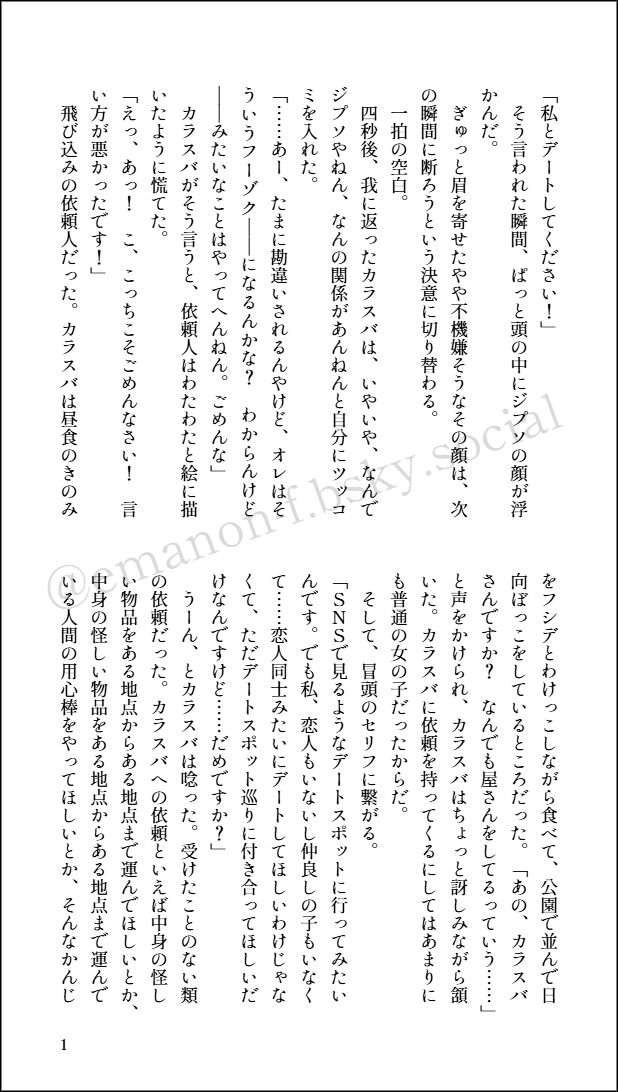 「私とデートしてください！」
　そう言われた瞬間、ぱっと頭の中にジプソの顔が浮
かんだ。
　ぎゅっと眉を寄せたやや不機嫌そうなその顔は、次
の瞬間に断ろうという決意に切り替わる。
　一拍の空白。
　四秒後、我に返ったカラスバは、いやいや、なんで
ジプソやねん、なんの関係があんねんと自分にツッコ
ミを入れた。
「……あー、たまに勘違いされるんやけど、オレはそ
ういうフーゾク――になるんかな？　わからんけど
――みたいなことはやってへんねん。ごめんな」
　カラスバがそう言うと、依頼人はわたわたと絵に描
いたように慌てた。
「えっ、あっ！　こ、こっちこそごめんなさい！　言
い方が悪かったです！」
　飛び込みの依頼人だった。カラスバは昼食のきのみ
をフシデとわけっこしながら食べて、公園で並んで日
向ぼっこをしているところだった。「あの、カラスバ
さんですか？　なんでも屋さんをしてるっていう……」
と声をかけられ、カラスバはちょっと訝しみながら頷
いた。カラスバに依頼を持ってくるにしてはあまりに
も普通の女の子だったからだ。
　そして、冒頭のセリフに繋がる。
「ＳＮＳで見るようなデートスポットに行ってみたい
んです。でも私、恋人もいないし仲良しの子もいなく
て……恋人同士みたいにデートしてほしいわけじゃな
くて、ただデートスポット巡りに付き合ってほしいだ
けなんですけど……だめですか？」
　うーん、とカラスバは唸った。受けたことのない類
の依頼だった。カラスバへの依頼といえば中身の怪し
い物品をある地点からある地点まで運んでほしいとか、
中身の怪しい物品をある地点からある地点まで運んで
いる人間の用心棒をやってほしいとか、そんなかんじ
1
@emanon-f.bsky.social